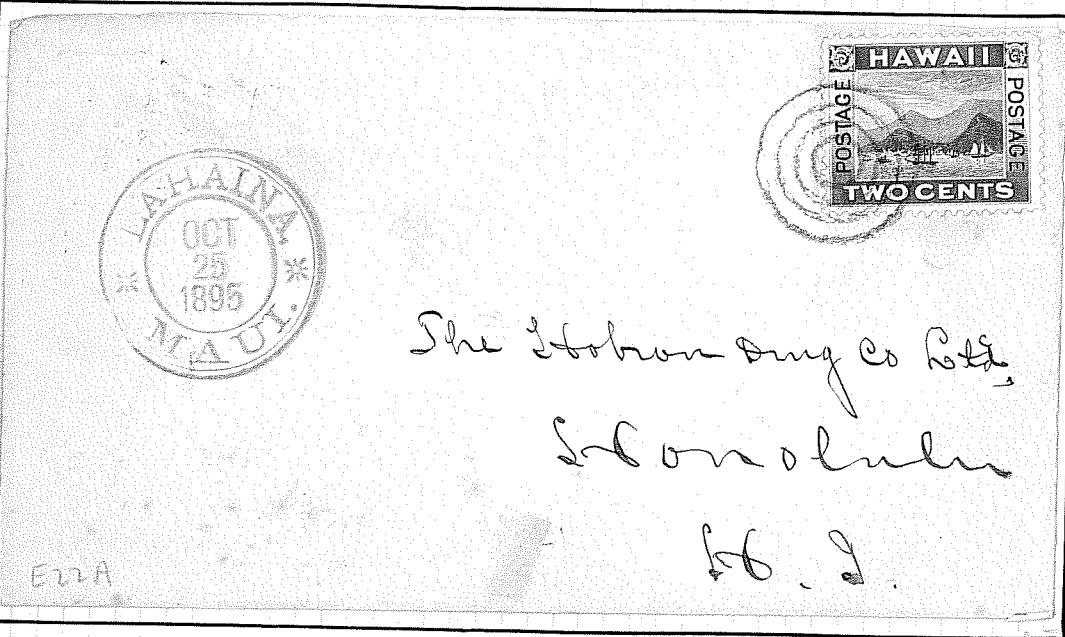 HAWAII
POSTAGE
POSTAGE
TWO CENTS
LAHAINA.
OCT
25
1895
MAUI.
The Hobron Drug Co Ltd,
Honolulu
H. I.
E22A